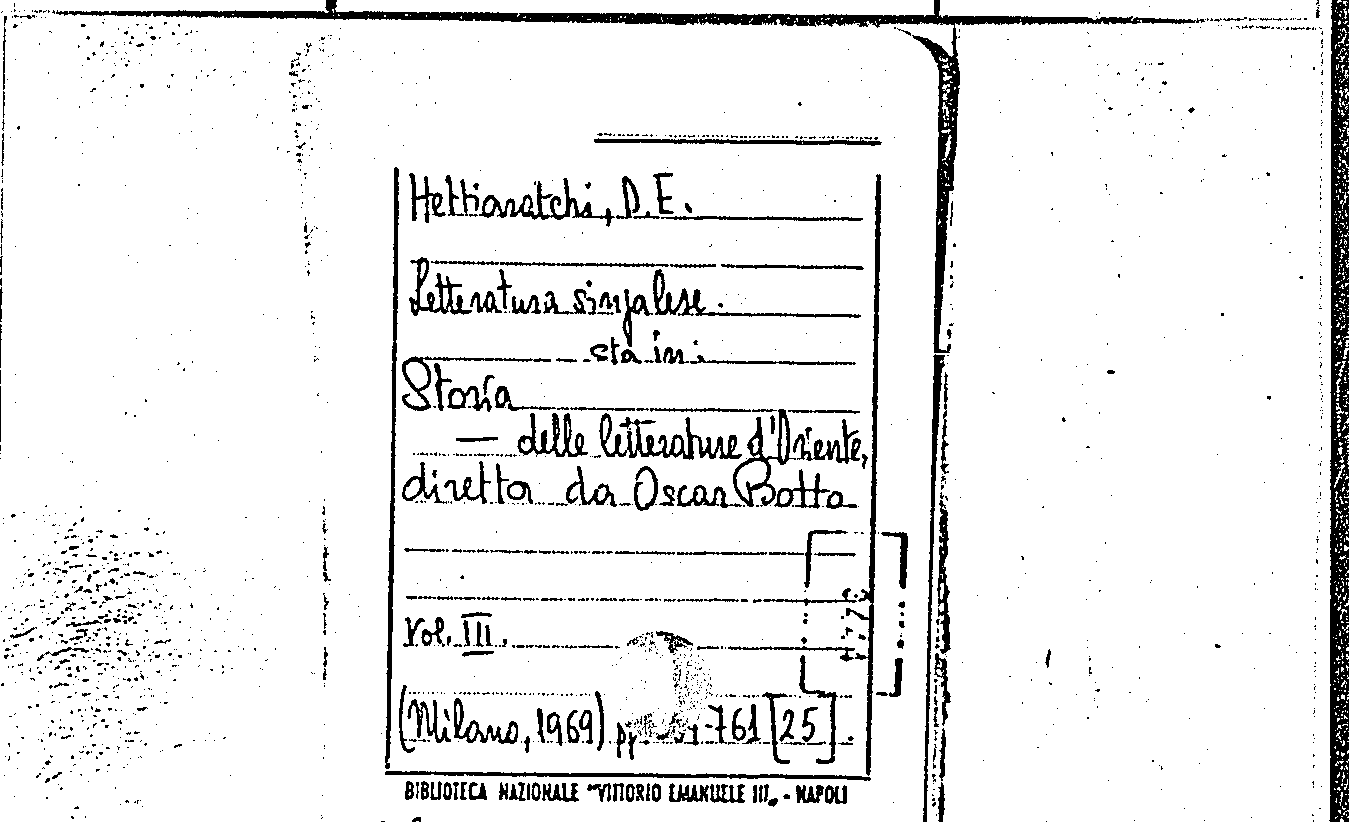 Hettiaratchi, D.E.
Letteratura singalese.
sta in:
Storia
— delle letterature d'Oriente,
diretta da Oscar Botto
vol. III.
(Milano, 1969) pp. -761 [25].
BIBLIOTECA NAZIONALE "VITTORIO EMANUELE III„ - NAPOLI